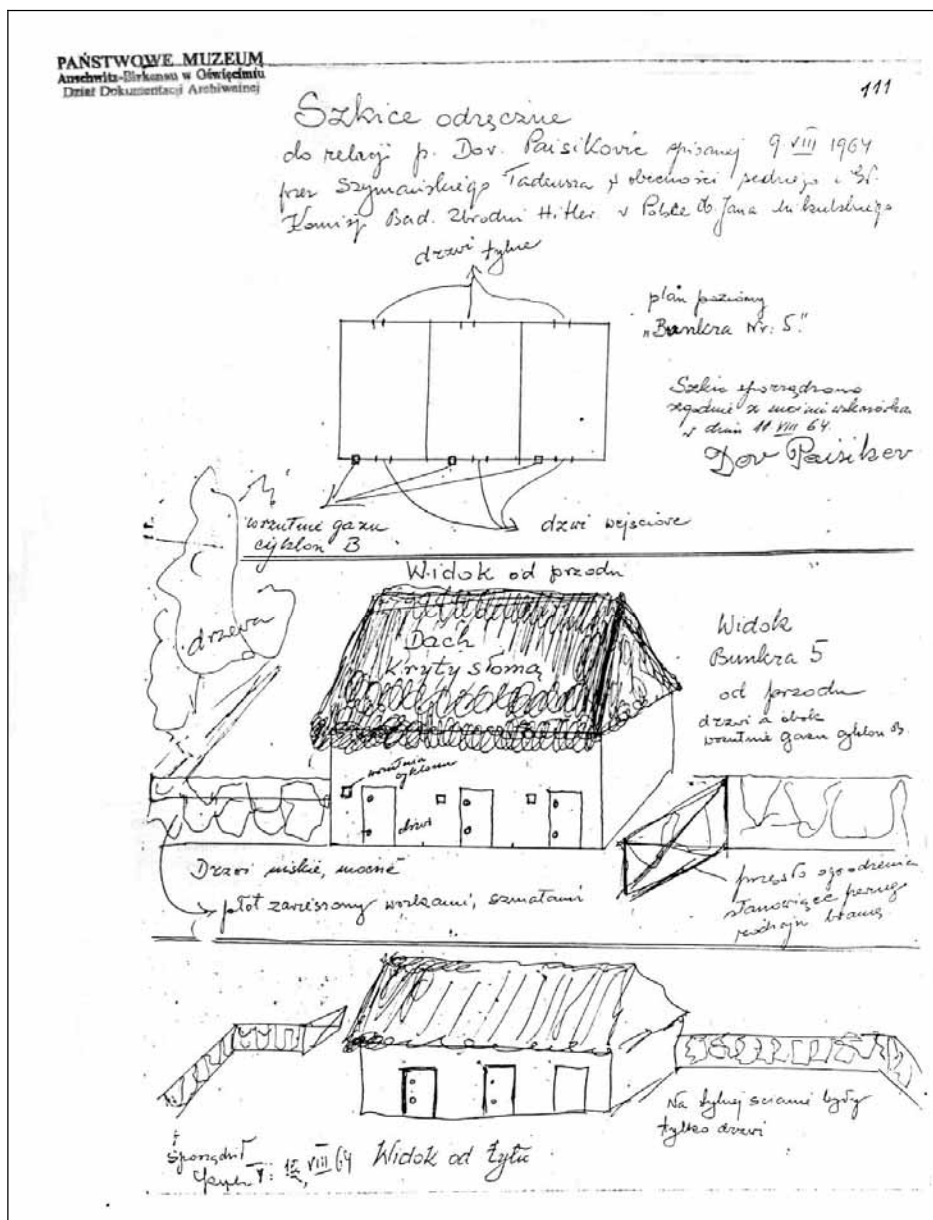 PAŃSTWOWE MUZEUM
Auschwitz-Birkenau w Oświęcimiu
Dział Dokumentacji Archiwalnej
111
Szkice odręczne
do relacji p. Dov. Paisiković spisanej 9 VIII 1964
przez Szymańskiego Tadeusza w obecności sędziego i
Komisji Bad. Zbrodni Hitler. w Polsce Jana Mikulskiego
drzwi tylne
plan poziomy
"Bunkra Nr: 5."
Szkic sporządzono
zgodnie z moimi
w dniu 11 VIII 64.
Dov Paisikov
wrzutnie gazu
cyklon B
drzwi wejściowe
Widok od przodu
drzewa
Dach
kryty słomą
Widok
Bunkra 5
od przodu
drzwi a obok
wrzutnie gazu cyklon B.
wrzutnia
cyklonu
drzwi
Drzwi niskie, mocne
płot zawieszony workami, szmatami
przęsło ogrodzenia
stanowiące pewnego
rodzaju bramę
Na tylnej ścianie były
tylko drzwi
Sporządził
VIII 64
Widok od tyłu